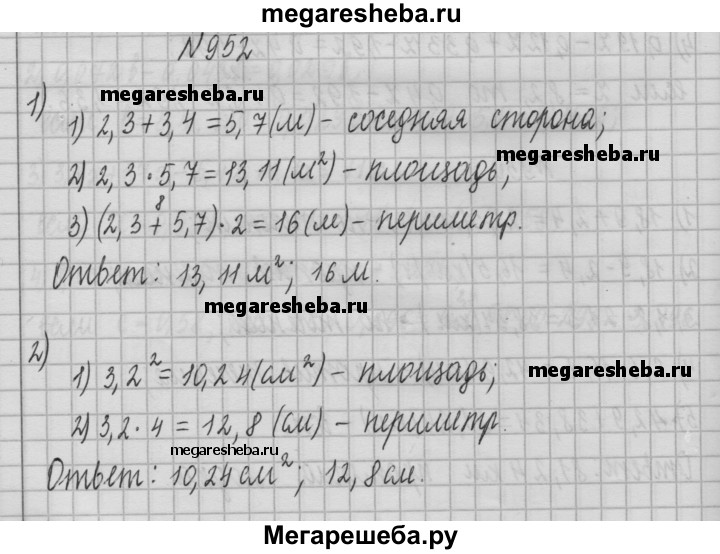 megaresheba.ru
№952
1)
megaresheba.ru
1) 2,3+3,4=5,7(м) - соседняя сторона;
megaresheba.ru
2) 2,3·5,7=13,11(м²) - площадь;
8
3) (2,3+5,7)·2=16(м) - периметр.
Ответ: 13,11м²; 16м.
megaresheba.ru
2)
1) 3,2²=10,24(см²) - площадь;
megaresheba.ru
2) 3,2·4=12,8(см) - периметр.
megaresheba.ru
Ответ: 10,24см²; 12,8см.
Мегарешеба.ру